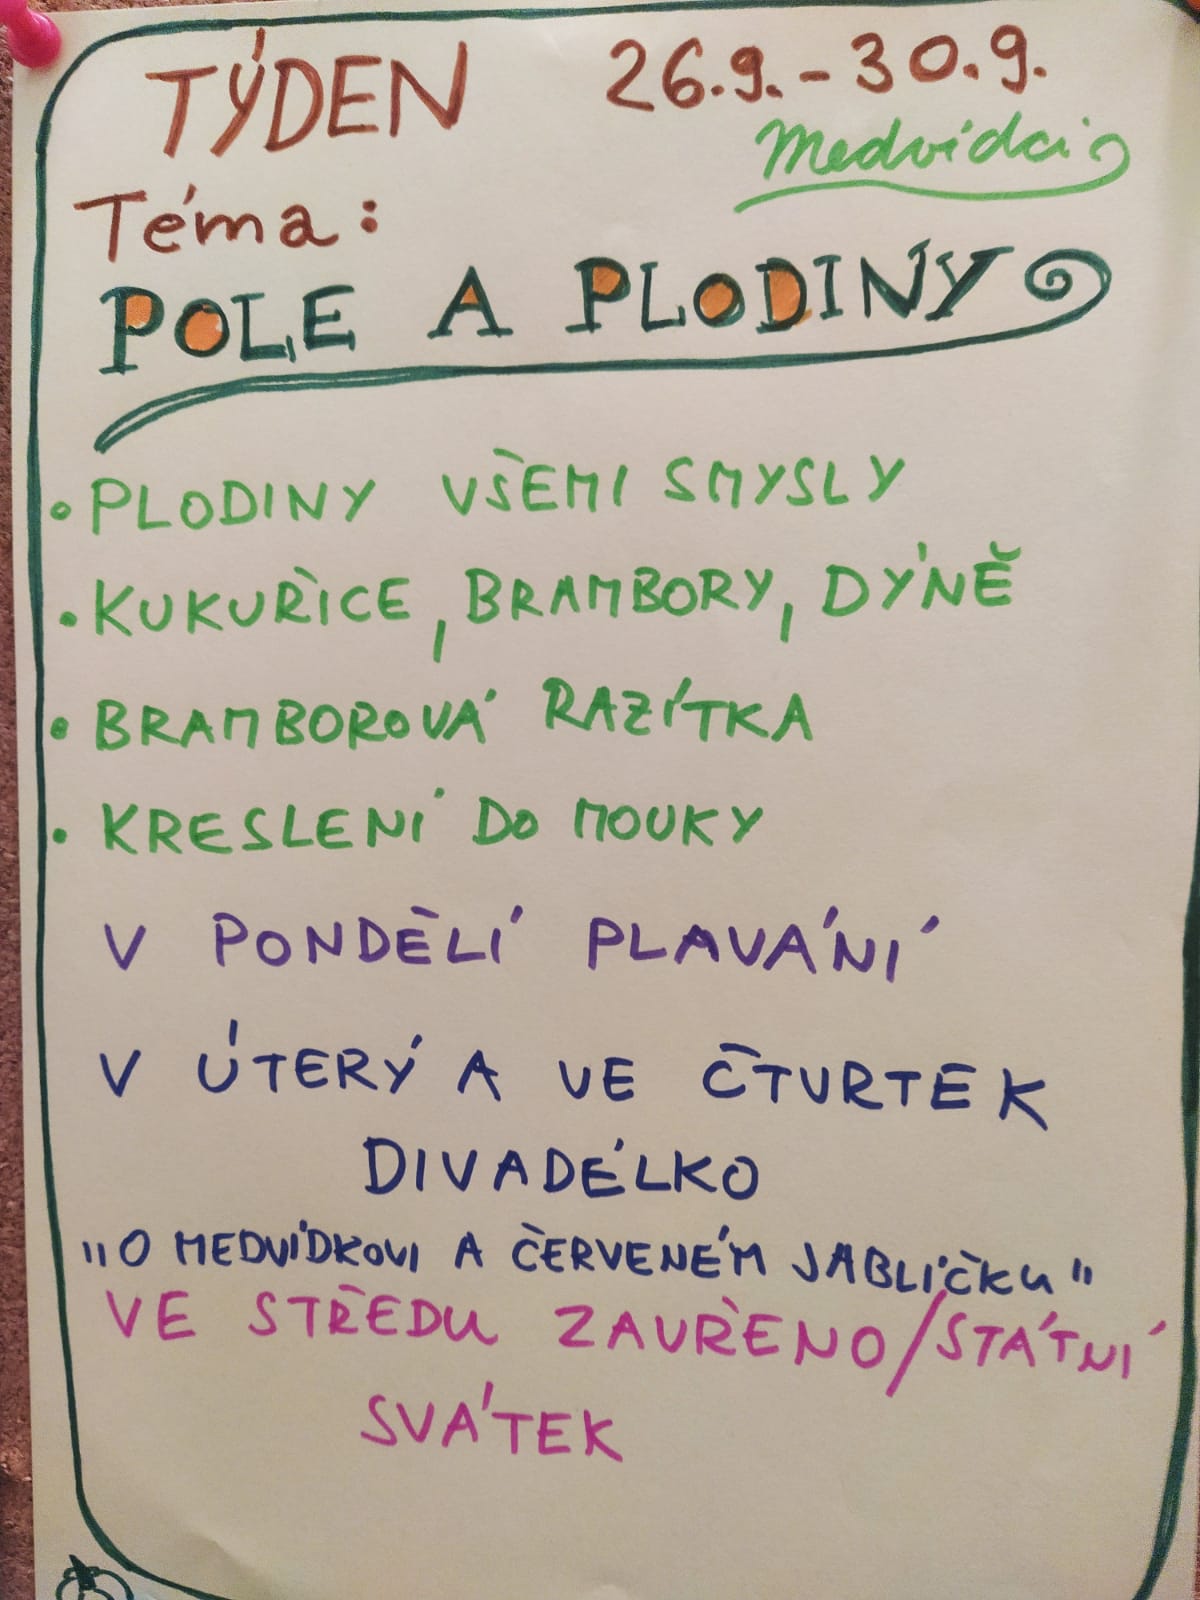 TÝDEN 26.9. - 30.9.
Medvídci
Téma:
POLE A PLODINY
• PLODINY VŠEMI SMYSLY
• KUKUŘICE, BRAMBORY, DÝNĚ
• BRAMBOROVÁ RAZÍTKA
• KRESLENÍ DO MOUKY
V PONDĚLÍ PLAVÁNÍ
V ÚTERÝ A VE ČTVRTEK
DIVADÉLKO
"O MEDVÍDKOVI A ČERVENÉM JABLÍČKU"
VE STŘEDU ZAVŘENO/STÁTNÍ
SVÁTEK